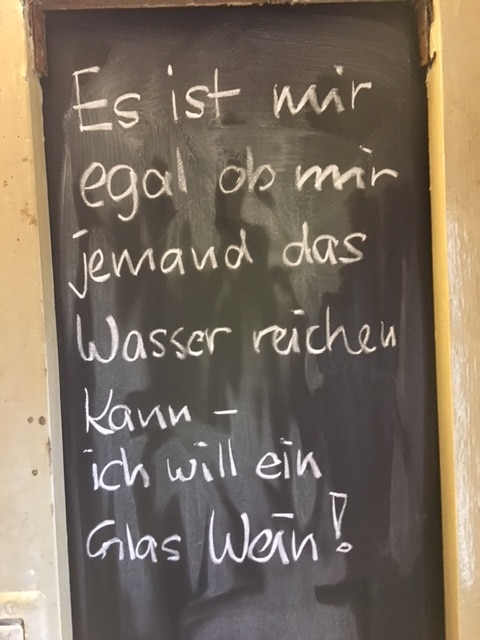 Es ist mir
egal ob mir
jemand das
Wasser reichen
kann –
ich will ein
Glas Wein!